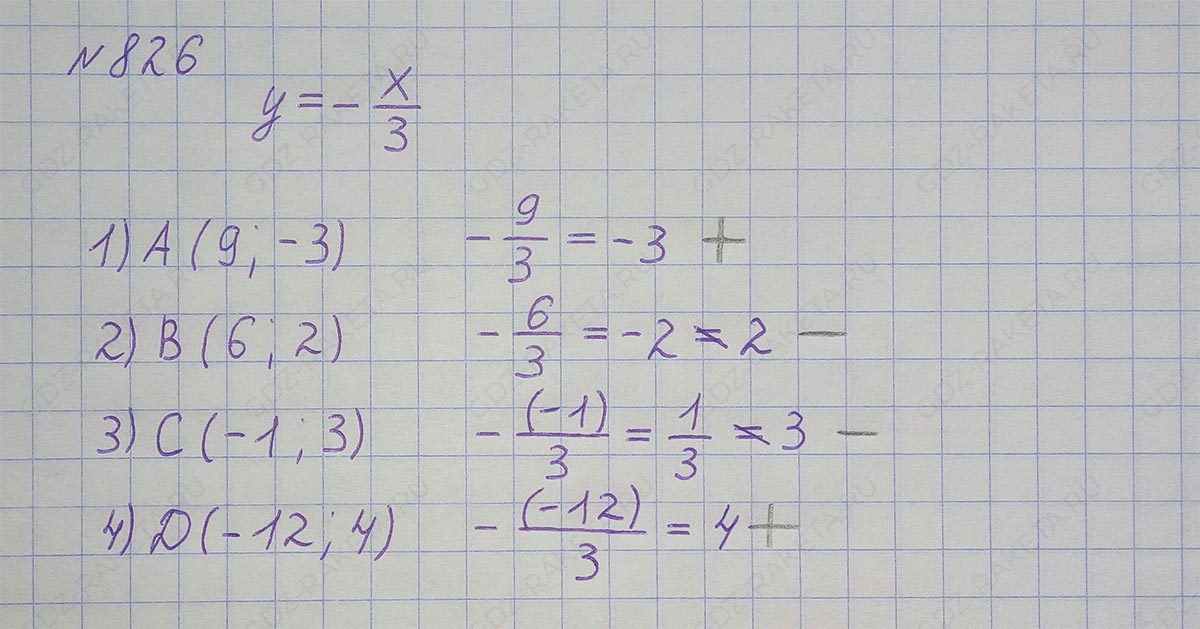 №826
y = - x/3
1) A (9; -3) - 9/3 = -3 +
2) B (6; 2) - 6/3 = -2 ≠ 2 —
3) C (-1; 3) - (-1)/3 = 1/3 ≠ 3 —
4) D (-12; 4) - (-12)/3 = 4 +
GDZ-RAKETA.RU